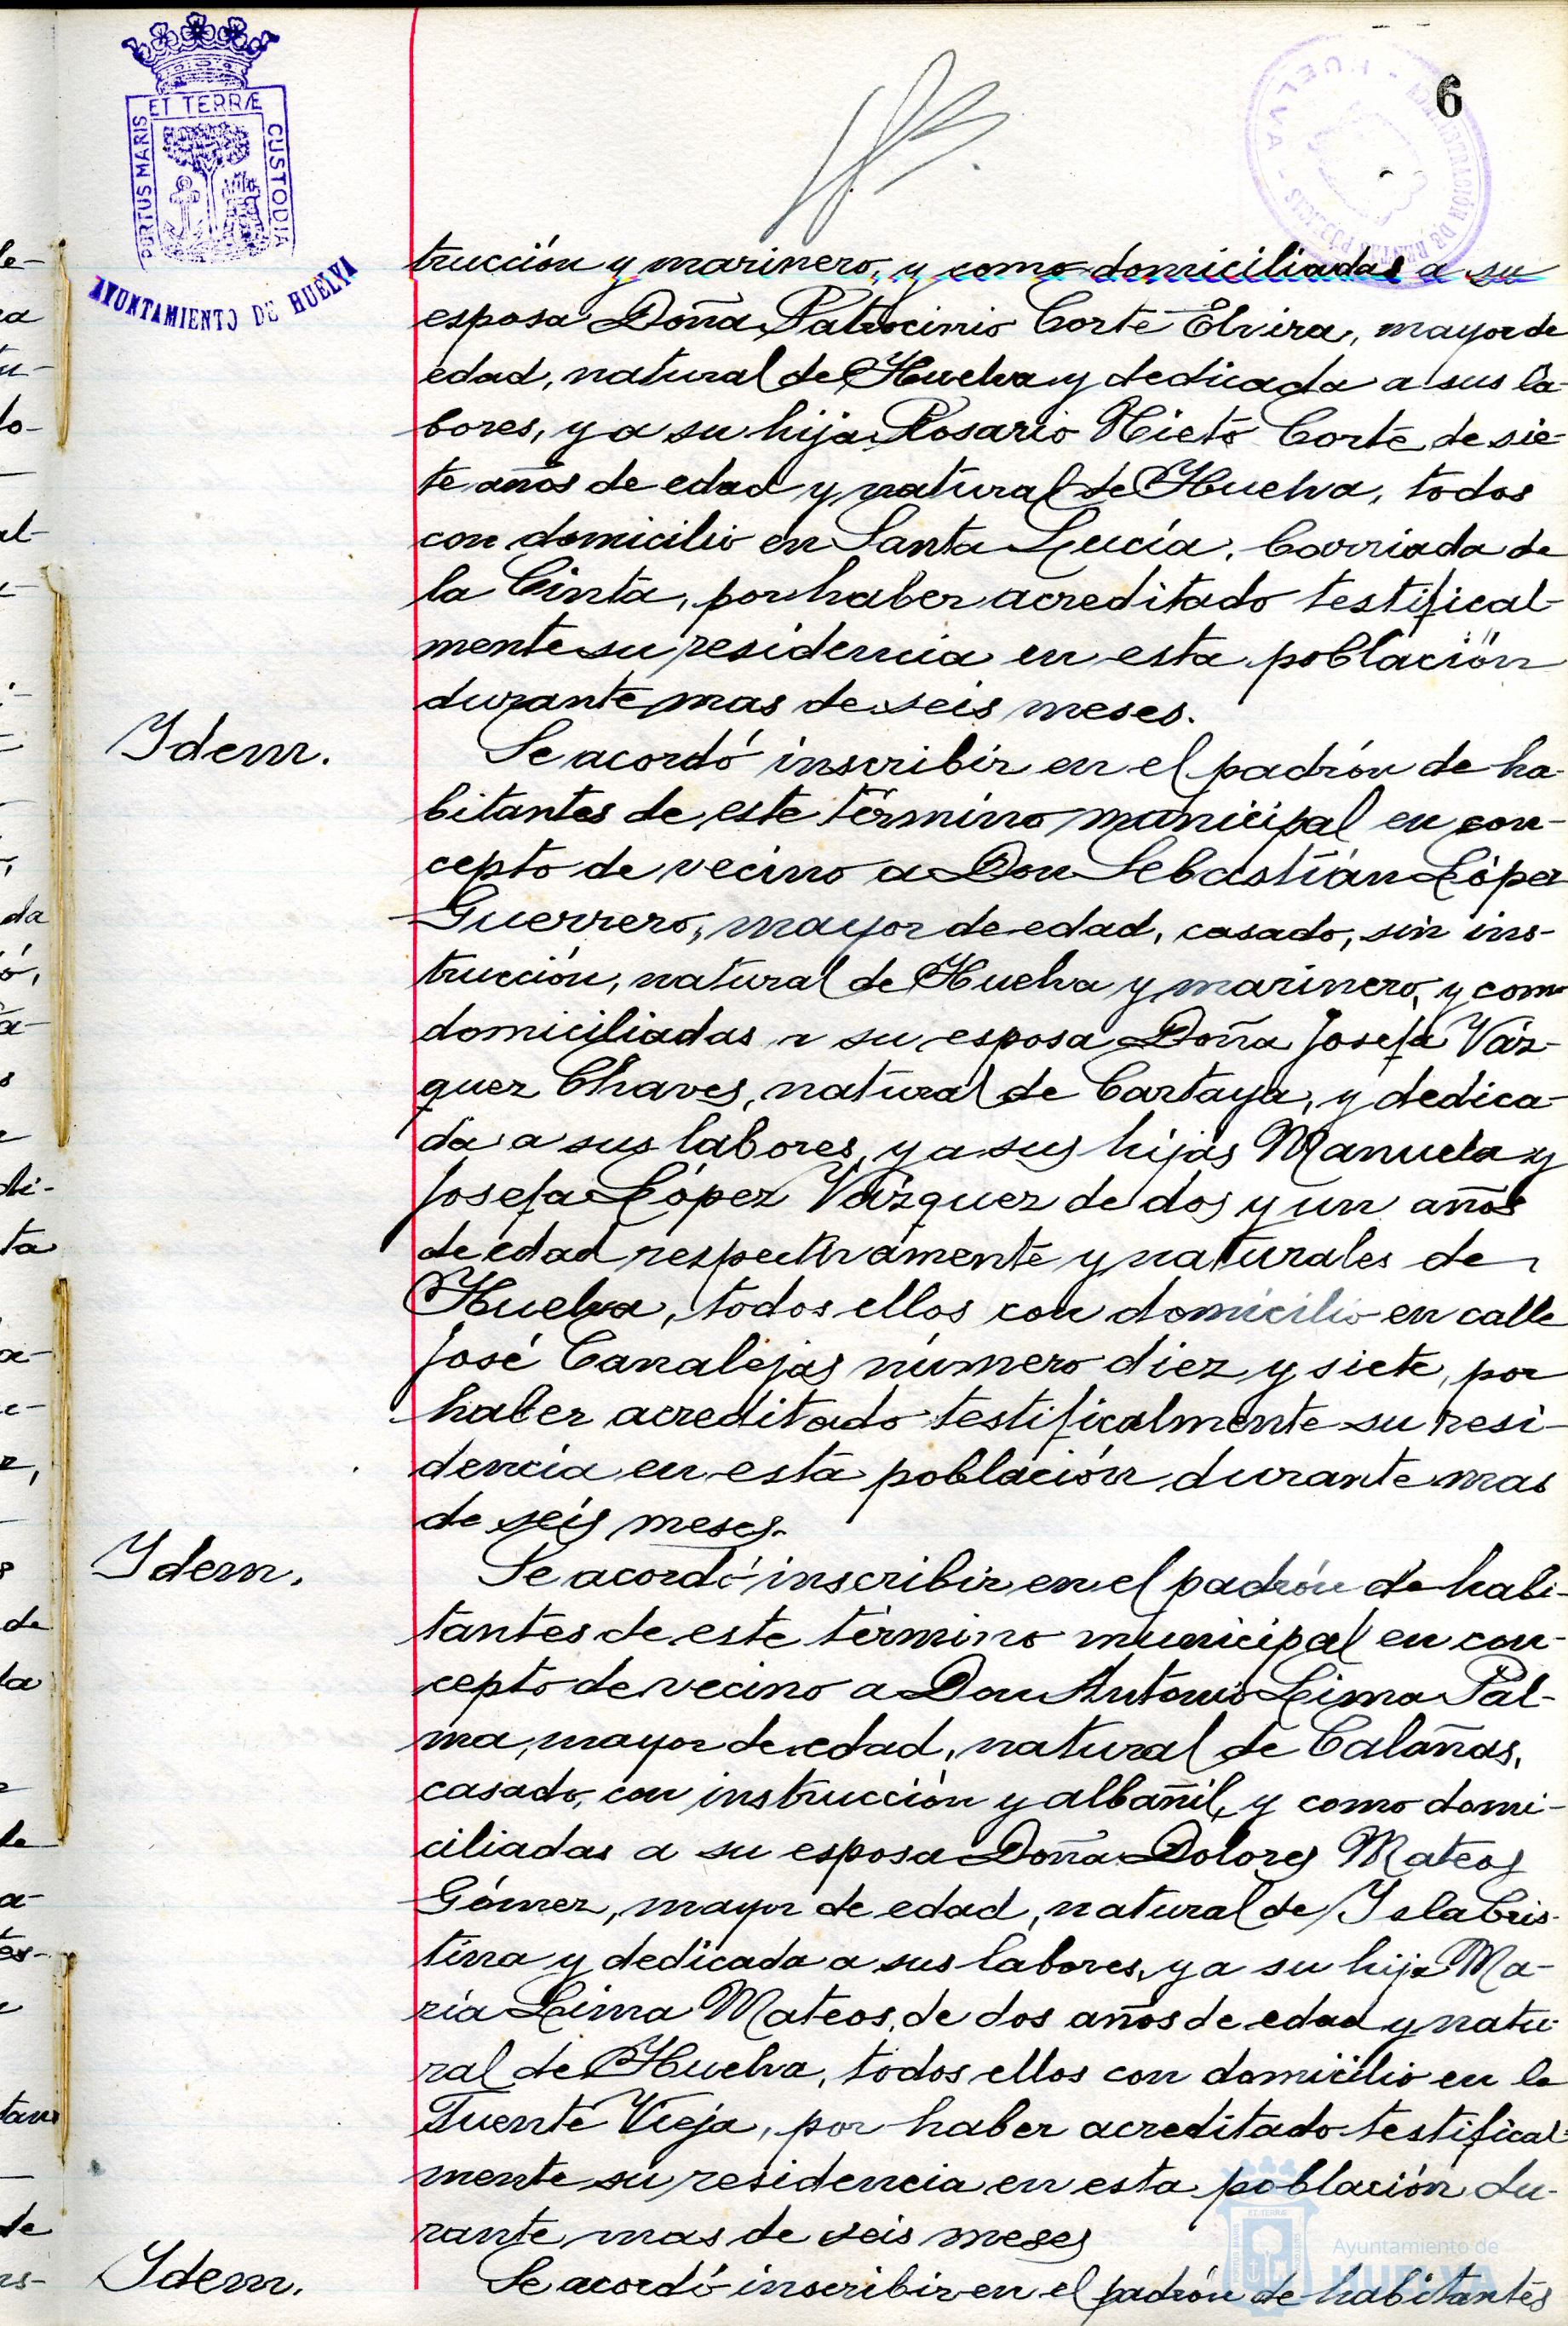 6
PORTUS MARIS ET TERRÆ CUSTODIA
AYUNTAMIENTO DE HUELVA
trucción y marinero, y como domiciliadas a su
esposa Doña Patrocinio Corte Elvira, mayor de
edad, natural de Huelva y dedicada a sus la-
bores, y a su hija Rosario Nieto Corte, de sie-
te años de edad y natural de Huelva, todos
con domicilio en Santa Lucía, barriada de
la Cinta, por haber acreditado testifical-
mente su residencia en esta población
durante mas de seis meses.
Idem.
Se acordó inscribir en el padrón de ha-
bitantes de este término municipal en con-
cepto de vecino a Don Sebastián López
Guerrero, mayor de edad, casado, sin ins-
trucción, natural de Huelva y marinero, y como
domiciliadas a su esposa Doña Josefa Váz-
quez Chaves, natural de Cartaya, y dedica-
da a sus labores, y a sus hijas Manuela y
Josefa López Vázquez de dos y un años
de edad respectivamente y naturales de
Huelva, todos ellos con domicilio en calle
José Canalejas número diez y siete, por
haber acreditado testificalmente su resi-
dencia en esta población durante mas
de seis meses.
Idem.
Se acordó inscribir en el padrón de habi-
tantes de este término municipal en con-
cepto de vecino a Don Antonio Lima Pal-
ma, mayor de edad, natural de Calañas,
casado, con instrucción y albañil, y como domi-
ciliadas a su esposa Doña Dolores Mateos
Gómez, mayor de edad, natural de Isla Cris-
tina y dedicada a sus labores, y a su hija Ma-
ría Lima Mateos, de dos años de edad y natu-
ral de Huelva, todos ellos con domicilio en la
Fuente Vieja, por haber acreditado testifical-
mente su residencia en esta población du-
rante mas de seis meses
Idem.
Se acordó inscribir en el padrón de habitantes
Ayuntamiento de
HUELVA